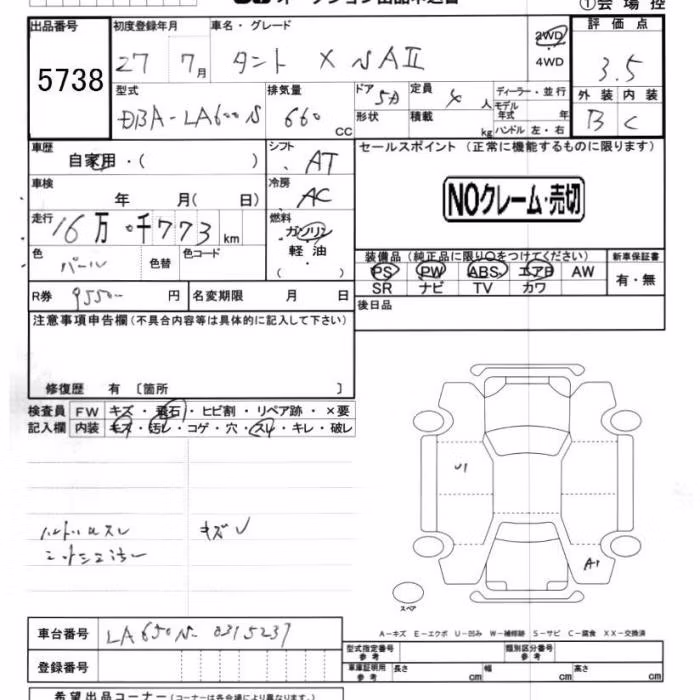 ①会場控
出品番号 初度登録年月 車名・グレード 評価点
5738 27 7月 タント X SAII 2WD 4WD 3.5
型式 排気量 ドア 定員 ディーラー・並行 外装 内装
DBA-LA600S 660 CC 5D 4人 モデル年式 年 B C
形状 積載 kg ハンドル 左・右
車歴 シフト セールスポイント (正常に機能するものに限ります)
自家用・( ) AT
車検 冷房
年 月( 日) AC NOクレーム・売切
走行 燃料
16万0千773km ガソリン
軽油
( )
色 色替 色コード 装備品(純正品に限り○をつけてください) 新車保証書
パール PS PW ABS エアB AW 有・無
R券 9550- 円 名変期限 月 日 SR ナビ TV カワ
注意事項申告欄(不具合内容等は具体的に記入して下さい) 後日品
修復歴 有 〔箇所 〕
検査員 FW キズ・飛石・ヒビ割・リペア跡・×要
記入欄 内装 キズ・汚レ・コゲ・穴・スレ・キレ・破レ
U1
ハンドルスレ キズレ
A1
スペア
A-キズ E-エクボ U-凹み W-補修跡 S-サビ C-腐食 XX-交換済
車台番号 LA650S-0315237
型式指定番号 参考 類別区分番号 参考
登録番号 車庫証明用 参考 長さ cm 幅 cm 高さ cm
希望出品コーナー(コーナーは各会場により異なります)